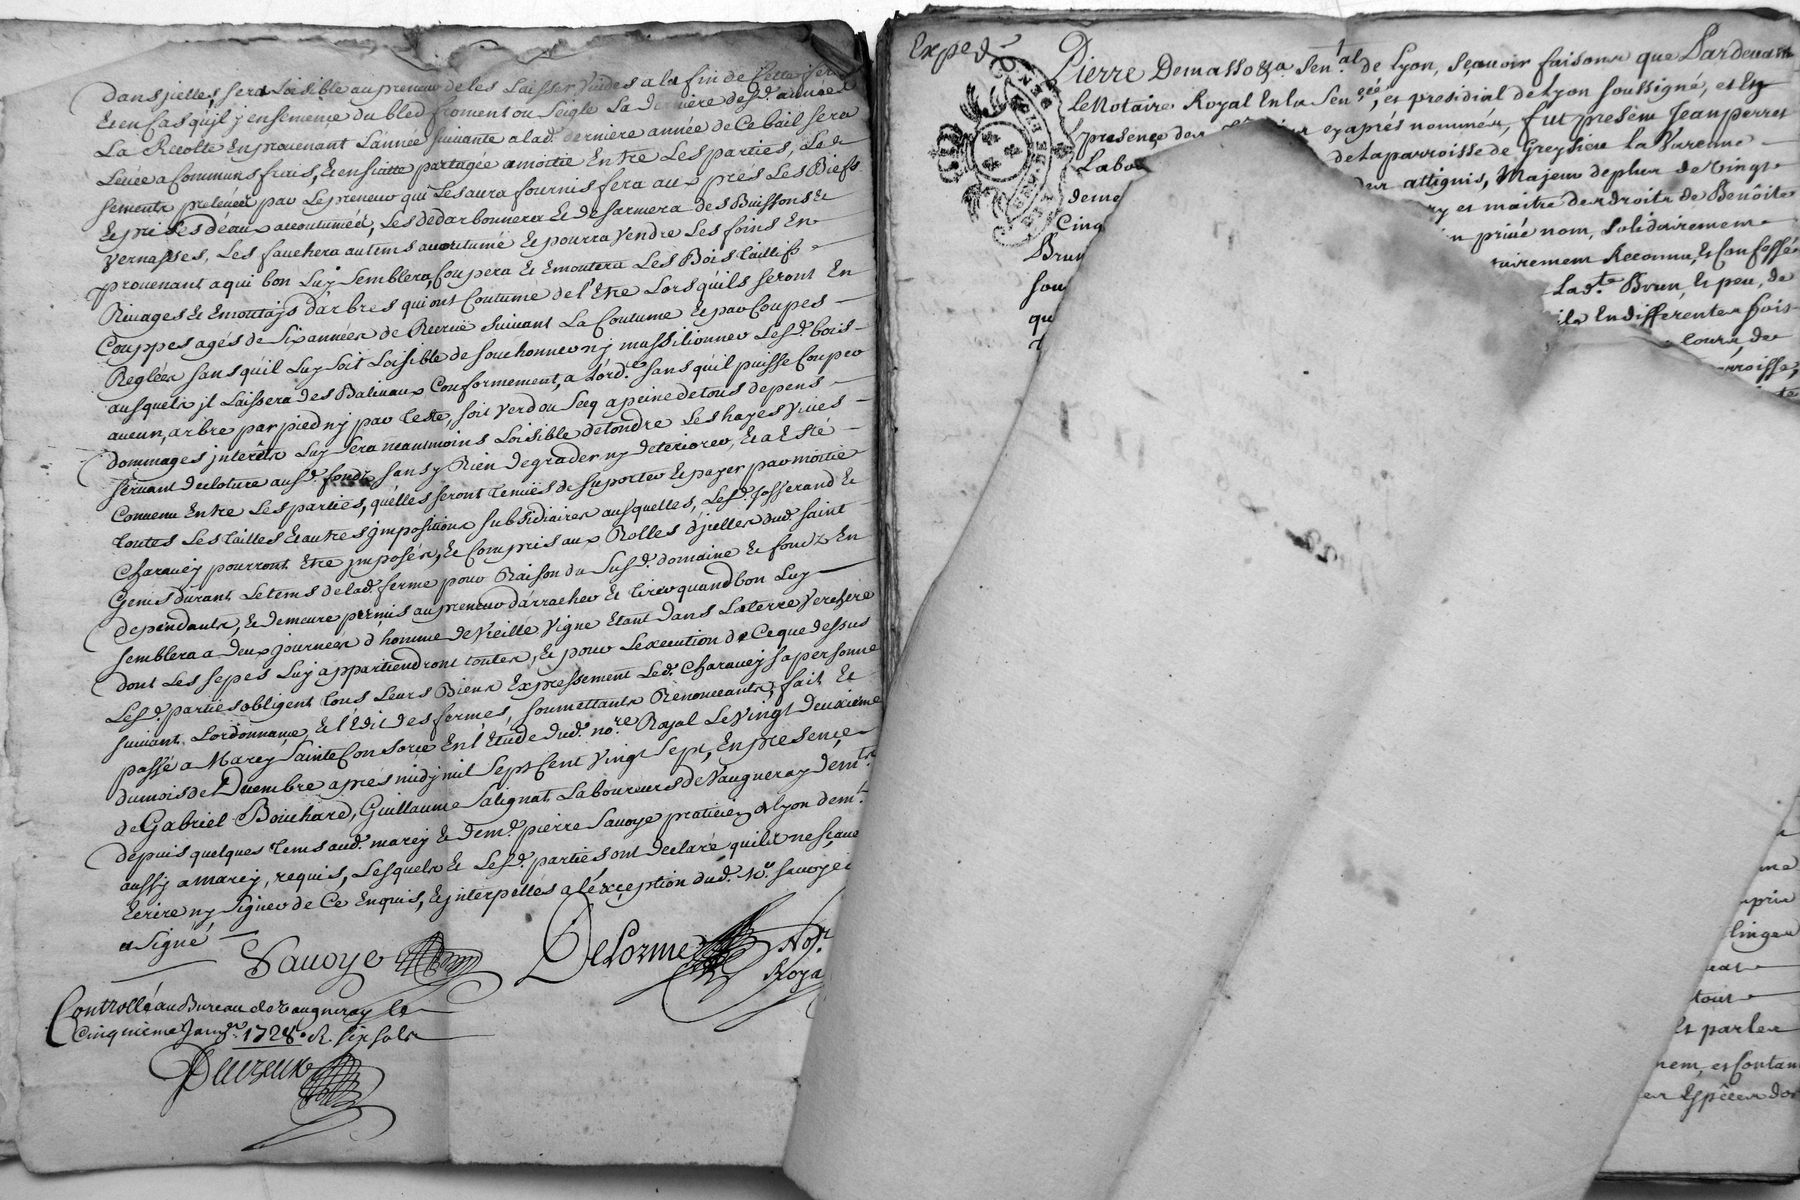 dans jcelles, sera Loisible au preneur de les Laisser Vuides a la fin de Cette ferme
Et en Cas qu'jl y ensemence du bled froment ou Seigle La derniere desd. années
La Recolte En provenant L'année suivante a lad. derniere année de Ce bail sera
Levée a Communs frais, Et ensuitte partagée a moitié Entre Les parties, Les
sements prelevées par Le preneur qui Les aura fournis fera aux prés Les Biefs
Et prises d'eaux accoutumées, Les dedarbonnera Et desarmera des Buissons Et
Vernasses, Les fauchera au tems accoutumé Et pourra Vendre Les foins En
provenant a qui bon Luy semblera, Coupera Et Emoutera Les Bois taillifs
Rivages Et Emoutajs d'arbres qui ont Coutume de l'Etre Lors qu'ils seront En
Couppes agés de Six années de Recrüe suivant La Coutume Et par Coupes
Reglées sans qu'il Luy soit Loisible de souchonner ny massilionner Lesd. bois
ausquels jl Laissera des Baliveaux Conformement, a L'ord.e sans qu'il puisse Couper
aucun, arbre par pied ny par Teste, soit Verd ou Secq a peine de tous depens
dommages jnterêts Luy sera neantmoins Loisible de tondre Les hayes Vives
servant de cloture ausd. fonds sans y Rien degrader ny deteriorer, Et a Esté
Convenu Entre Les parties, qu'elles seront tenües de suporter Et payer par moitié
toutes Les tailles Et autres jmpositions subsidiaires ausquelles, Lesd. Josserand Et
Charavey pourront Etre jmposés, Et Compris aux Rolles d'jcelles dud. saint
Genis durant Le tems de lad. ferme pour Raison du Susd. domaine Et fonds En
dependants, Et demeure permis au preneur d'arracher Et tirer quand bon Luy
semblera a deux journées d'homme de Vieille Vigne Etant dans La terre Verchere
dont Les sepes Luy appartiendront toutes, Et pour L'execution de Ce que dessus
Lesd. parties obligent tous Leurs Biens Expressement Led. Charavey sa personne
suivant L'ordonnance, Et l'Edit des fermes, soumettants Renonceants, fait Et
passé a Marcy Sainte Consorce En l'Etude dud. no.re Royal Le Vingt deuxieme
du mois de Decembre aprés midy mil Sept Cent Vingt Sept, En presence
de Gabriel Bouchard, Guillaume Salignat Laboureurs de Vaugneray dem.ts
depuis quelques tems aud. marcy Et de m.e pierre Savoye praticien a Lyon dem.t
aussy a Marcy, requis, Lesquels Et Lesd. parties ont declaré qu'ils ne sçave
Ecrire ny Signer de Ce Enquis, Et interpellés a l'exception dud. M.e Savoye
a Signé
Savoye
DeLorme No.re
Roya
Controllé au Bureau de Vaugneray le
Cinquieme Janv.r 1728. R. six sols
Exped
Pierre Demasso &a. Sen.al de Lyon, sçavoir faisons que Pardevant
le Notaire Royal En la Sen.cée, et presidial de Lyon soussigné, et En
presence des exaprés nommés, fut présent Jean perret
Labo de la parroisse de Greysieu la Varenne
deme attignis, Majeur de plus de Vingt
Cinq ry et maitre des droits de Benôite
Brun n privé nom, solidairement
sou tairement Reconnu, et Confessé
qu Lad.te Brun, Et peu, de
ils En differentes fois
cours, de
arroisse,
me
linge
tout
Et parler
nem, et Contan
es Espèces d'or